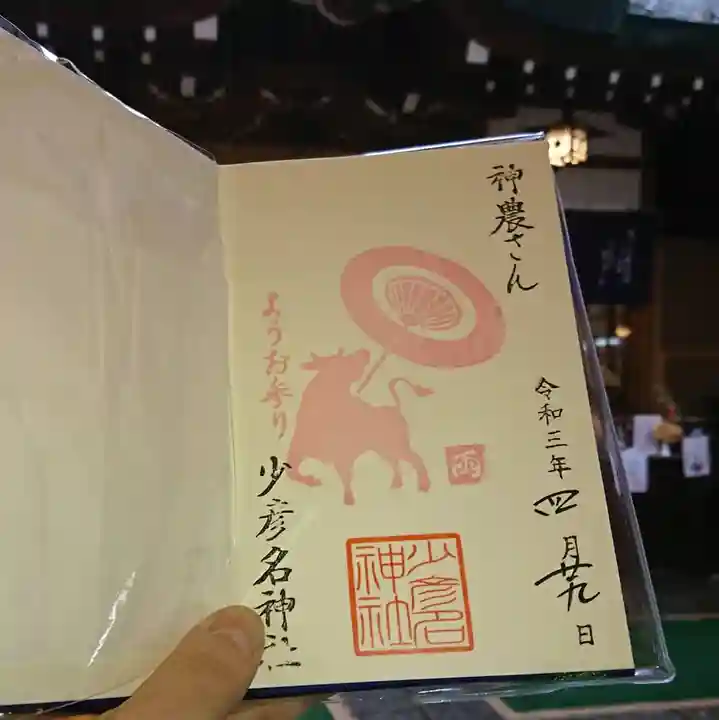 神農さん
令和三年四月廿九日
ようお参り
雨
少彦名神社
少彦名
神社